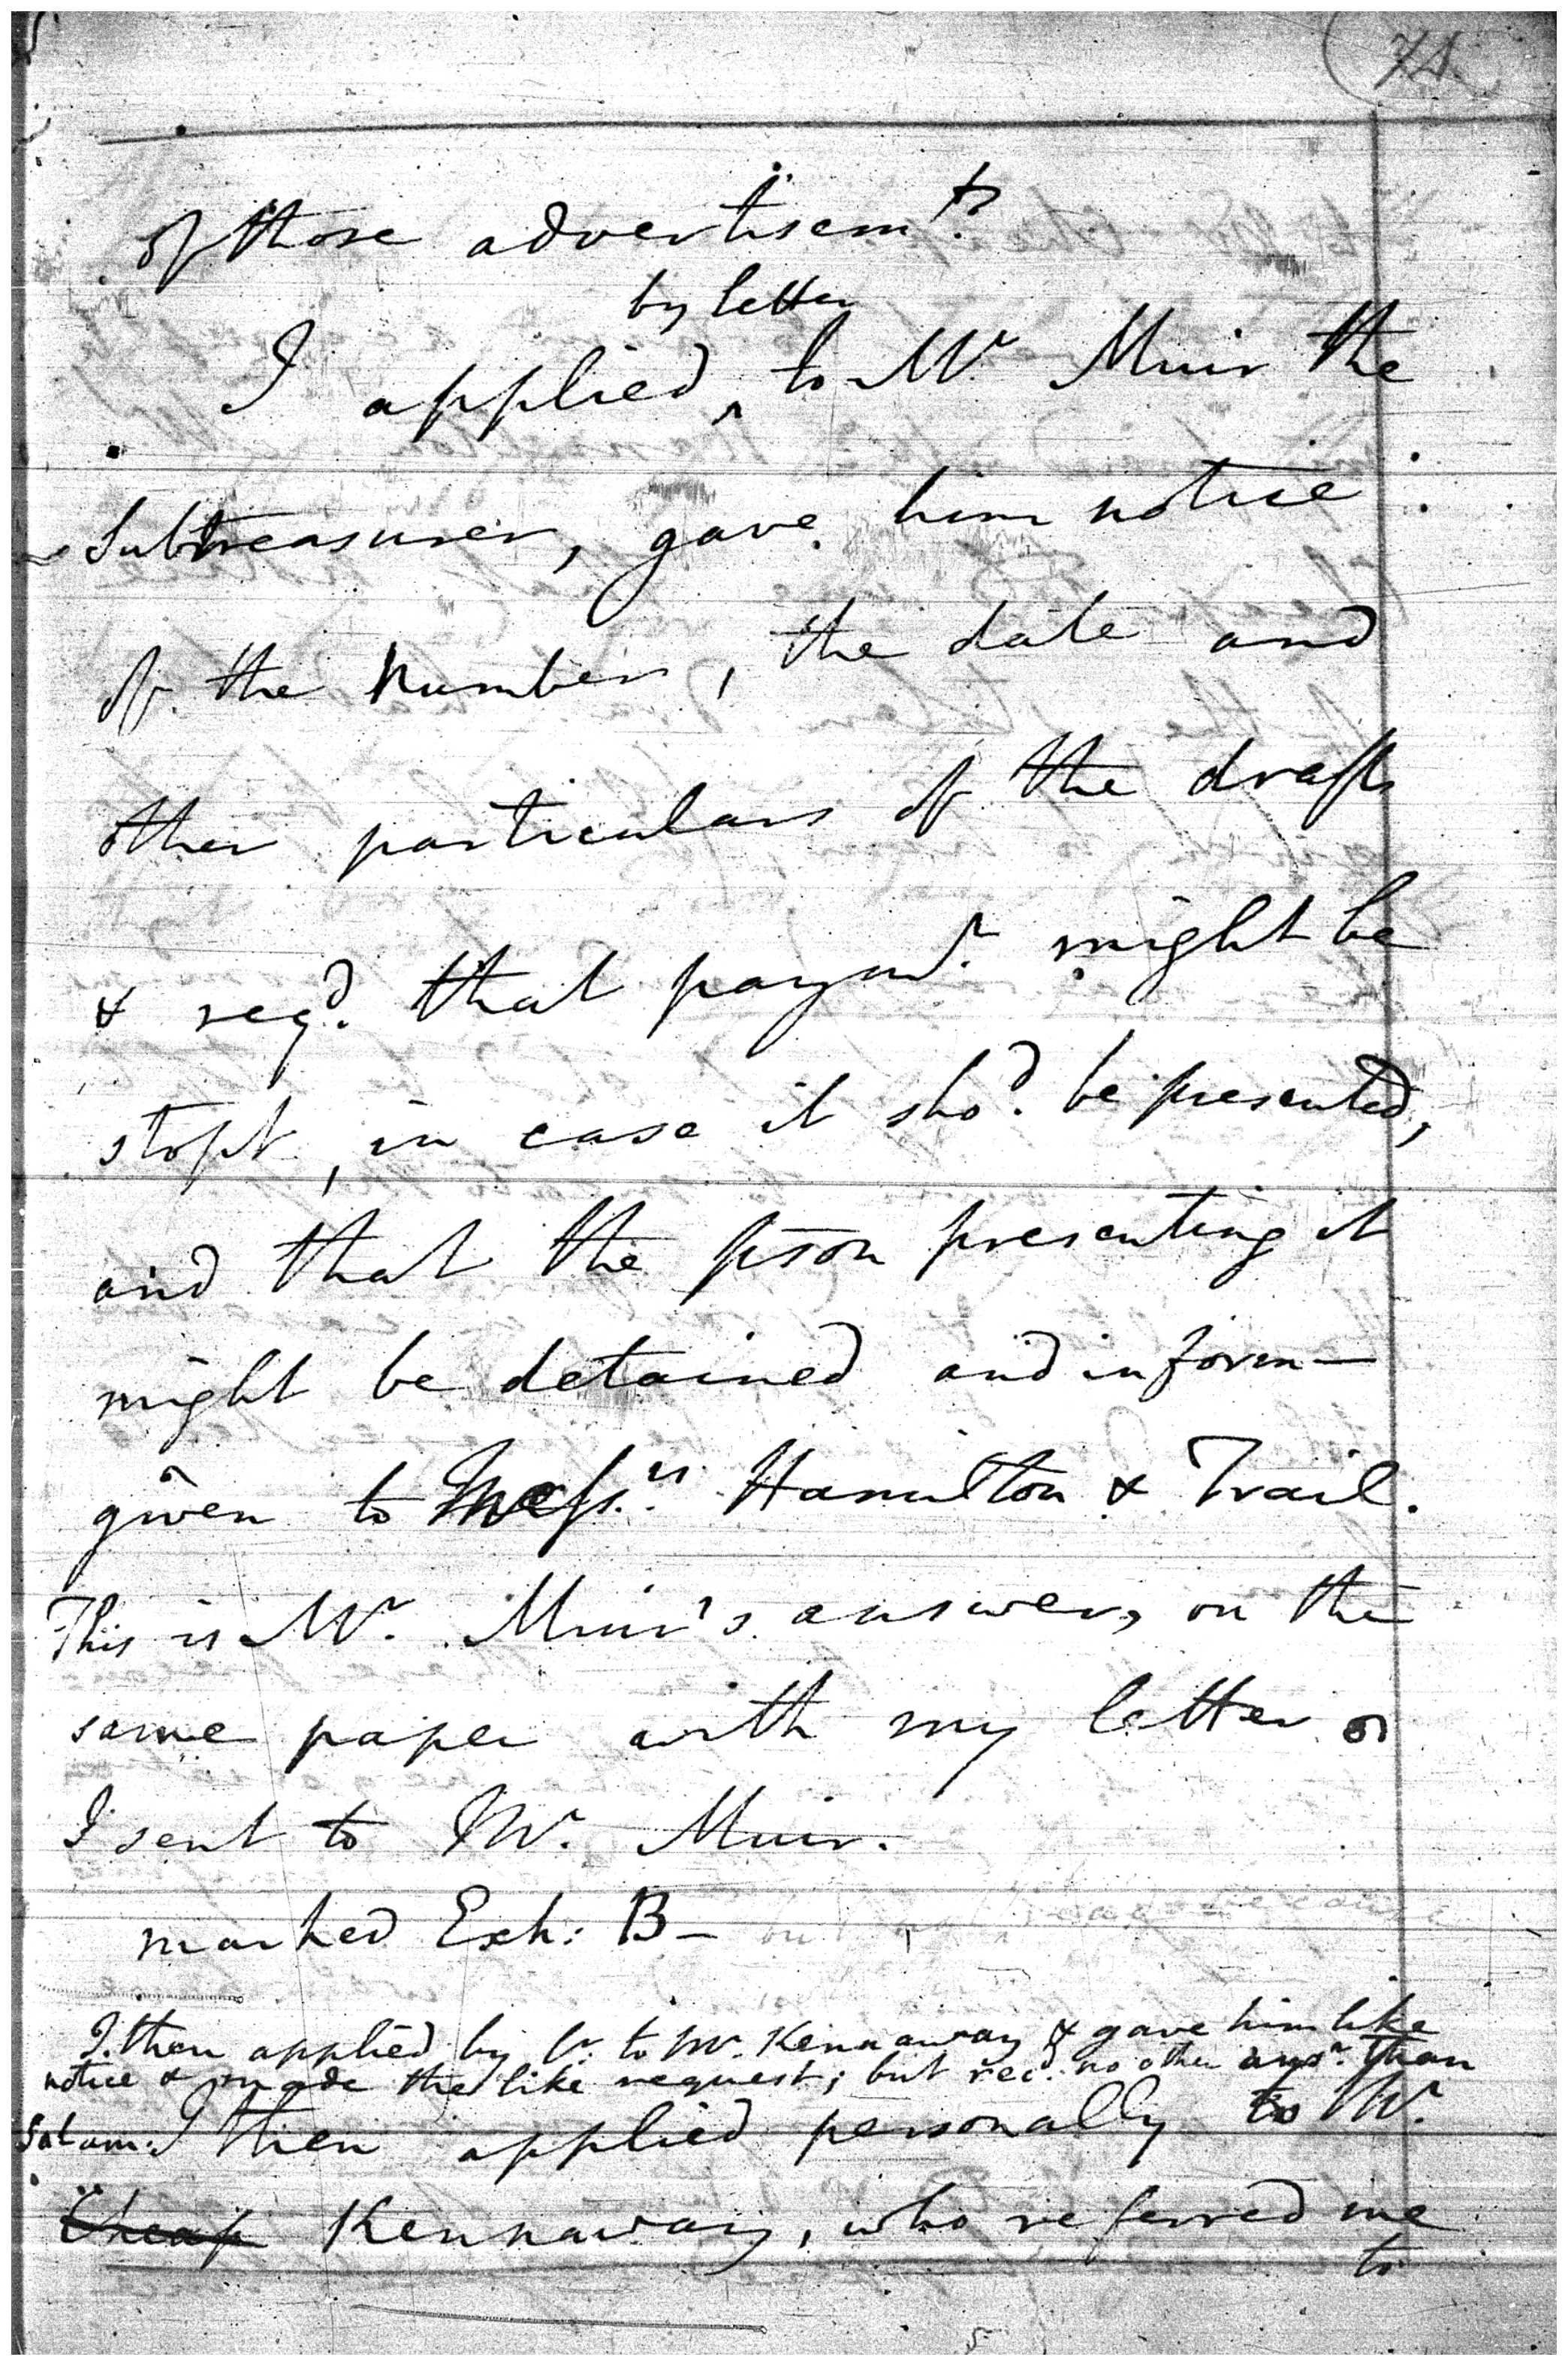 74.
of those advertisemts.
by letter
I applied ‸ to Mr. Muir the
Subtreasurer, gave him notice
of the Number, the date and
other particulars of the drafts
& reqd. that paymt. might be
stopt, in case it shod. be presented,
and that the pson presenting it
might be detained and inform—
given to Messrs. Hamilton & Trail.
This is Mr. Muir's answer, on the
same paper with my letter
I sent to Mr. Muir.
marked Exh: B—
I then applied by lr. to Mr. Kennaway & gave him like
notice & made the like request; but recd. no other answr. than
Salam. I then applied personally to Mr.
Cheap Kennaway, who referred me
to